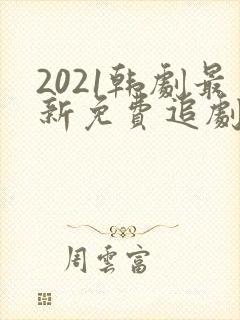 2021韩劇最
新免費追劇
周雲富